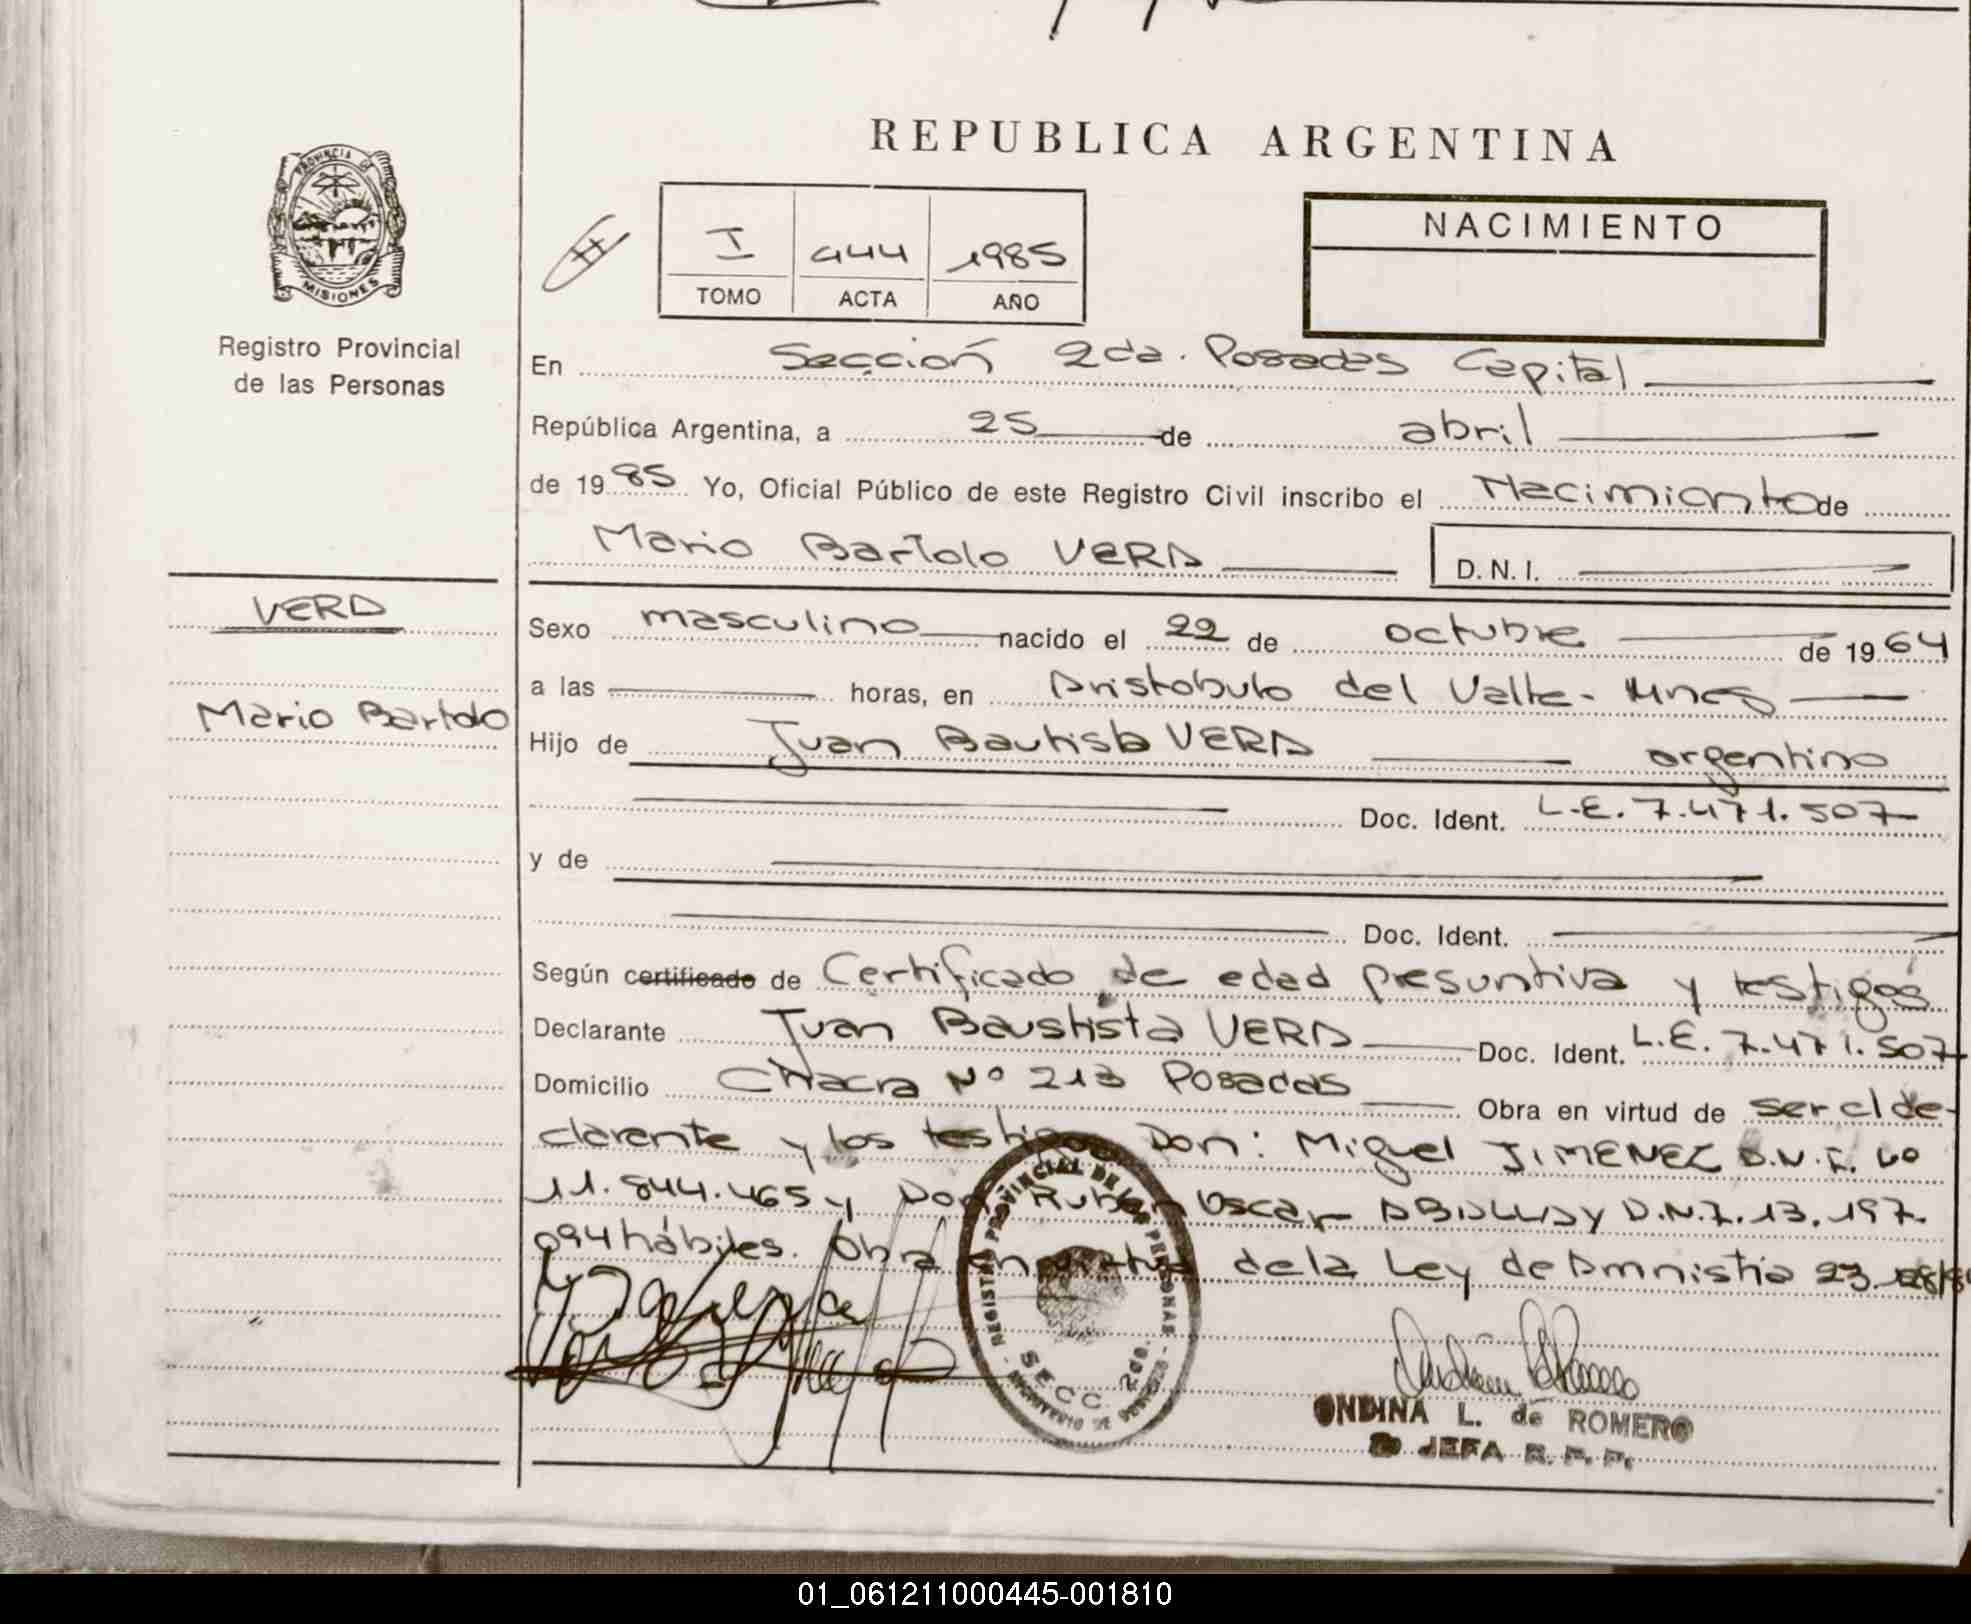 REPUBLICA ARGENTINA
PROVINCIA DE
MISIONES
Registro Provincial
de las Personas
I 444 1985
TOMO ACTA AÑO
NACIMIENTO
En Sección 2da. Posadas Capital
República Argentina, a 25 de abril
de 1985 Yo, Oficial Público de este Registro Civil inscribo el Nacimiento de
Mario Bartolo VERA D.N.I.
VERA
Mario Bartolo
Sexo masculino nacido el 22 de octubre de 1964
a las horas, en Aristobulo del Valle - Mnes
Hijo de Juan Bautista VERA argentino
Doc. Ident. L.E. 7.471.507
y de
Doc. Ident.
Según certificado de Certificado de edad presuntiva y testigos
Declarante Juan Baustista VERA Doc. Ident. L.E. 7.471.507
Domicilio Chacra Nº 213 Posadas Obra en virtud de ser el de-
clarente y los testigos Don: Miguel JIMENEZ D.N.I. Nº
11.844.465 y Don Ruben Oscar D.N.I. 13.197.
094 hábiles. Obra en virtud de la Ley de Amnistia 23.
REGISTRO PROVINCIAL DE LAS PERSONAS
SECC. 2da.
ONDINA L. de ROMERO
JEFA R. P. P.
01_061211000445-001810